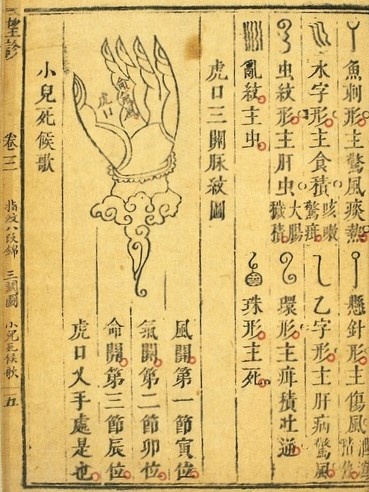 魚刺形主驚風痰熱
懸針形主傷風
水字形主食積咳嗽驚疳
乙字形主肝病驚風
虫紋形主肝虫大腸穢積
環形主疳積吐逆
亂紋主虫
珠形主死
虎口三關脉紋圖
風
氣
命
虎口
風關第一節寅位
氣關第二節卯位
命關第三節辰位
虎口乂手處是也
小兒死候歌
望診
卷三
指紋八段錦
三關圖
小兒死候歌
五